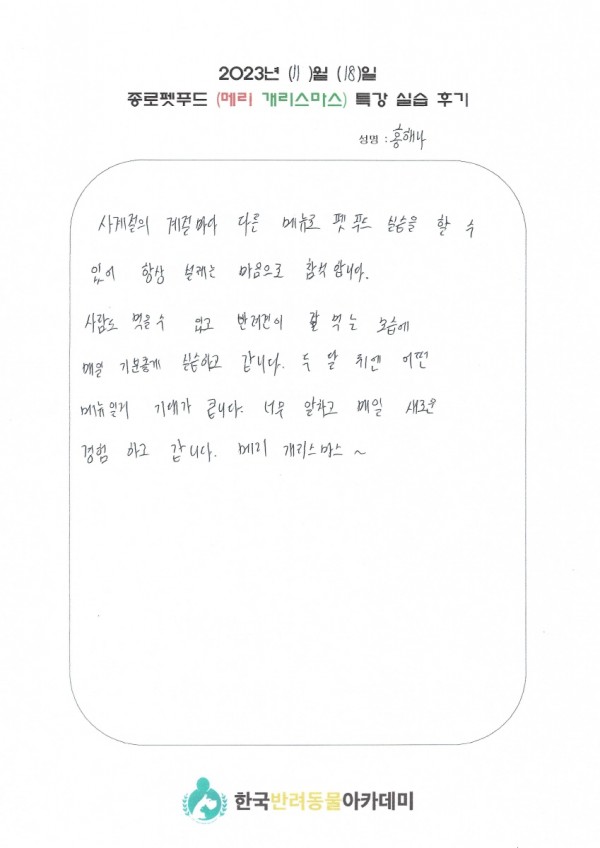 2023년 (11)월 (18)일
종로펫푸드 (메리 개리스마스) 특강 실습 후기
성명 : 홍해나
사계절의 계절마다 다른 메뉴로 펫 푸드 실습을 할 수
있어 항상 설레는 마음으로 참석합니다.
사람도 먹을수 있고 반려견이 잘 먹는 모습에
매일 기분좋게 실습하고 갑니다. 두 달 뒤엔 어떤
메뉴일지 기대가 큽니다. 너무 알차고 매일 새로운
경험 하고 갑니다. 메리 개리스마스 ~
한국반려동물아카데미